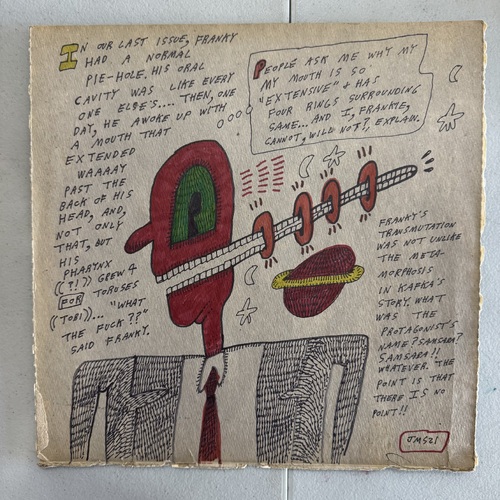 IN OUR LAST ISSUE, FRANKY
HAD A NORMAL
PIE-HOLE. HIS ORAL
CAVITY WAS LIKE EVERY
ONE ELSE'S.... THEN, ONE
DAY, HE AWOKE UP WITH
A MOUTH THAT
EXTENDED
WAAAAY
PAST THE
BACK OF HIS
HEAD, AND,
NOT ONLY
THAT, BUT
HIS
PHARYNX
((?!)) GREW 4
FOR TORUSES
((TORI))... "WHAT
THE FUCK??"
SAID FRANKY.
PEOPLE ASK ME WHY MY
MY MOUTH IS SO
"EXTENSIVE" + HAS
FOUR RINGS SURROUNDING
SAME... AND I, FRANKIE,
CANNOT, WILL NOT?, EXPLAIN.
FRANKY'S
TRANSMUTATION
WAS NOT UNLIKE
THE META-
MORPHOSIS
IN KAFKA'S
STORY. WHAT
WAS THE
PROTAGONIST'S
NAME? SAMSARA?
SAMSARA!!
WHATEVER. THE
POINT IS THAT
THERE IS NO
POINT!!
JMS21